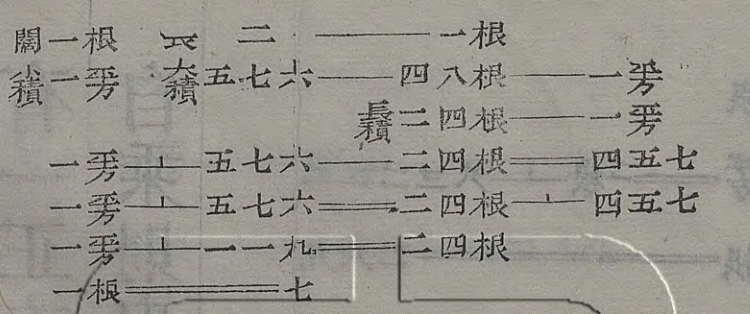 闊一根 長二——一根
小積一平方 大積五七六——四八根——一平方
長積二四根——一平方
一平方⊥五七六——二四根══四五七
一平方⊥五七六══二四根⊥四五七
一平方⊥一一九══二四根
一根══七